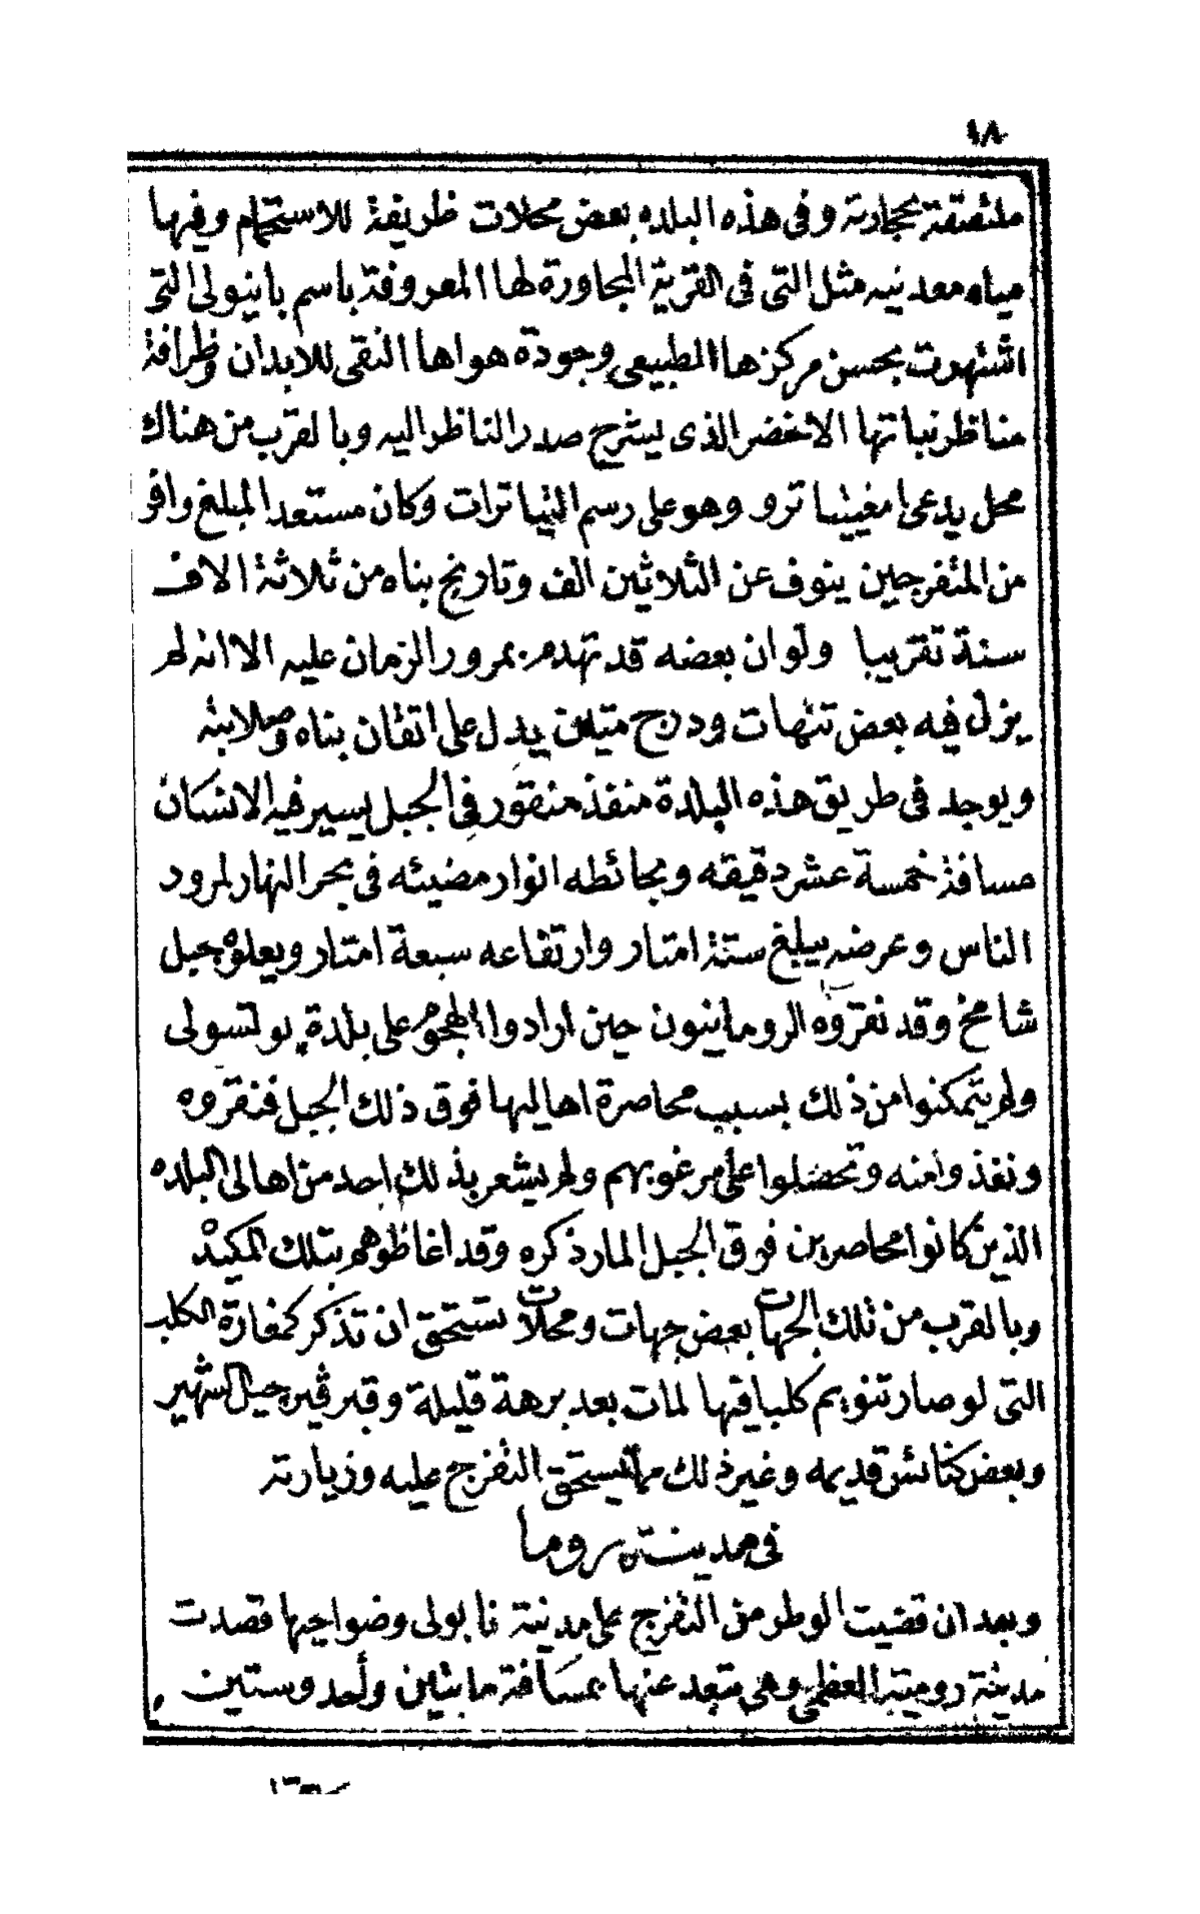 ١٨
ملتصقة بجارية وفى هذه البلده بعض محلات ظريفة للاستحمام وفيها
مياه معدنيه مثل التى فى القرية المجاورة لها المعروفة باسم باينولى التى
اشتهرت بحسن مركزها الطبيعى وجودة هواها النقى للابدان وظرافة
مناظر نباتها الاخضر الذى يشرح صدر الناظر اليه وبالقرب من هناك
محل يدعى امفيتياترو وهو على رسم التياترات وكان مستعدا لمبلغ وافر
من المتفرجين ينوف عن الثلاثين الف وتاريخ بناه من ثلاثة الاف
سنة تقريبا ولو ان بعضه قد تهدم بمرور الزمان عليه الا انه لم
يزل فيه بعض تنهات ودرج متين يدل على اتقان بناه وصلابته
ويوجد فى طريق هذه البلدة منفذ منقور فى الجبل يسير فيه الانسان
مسافة خمسة عشر دقيقه وبحائطه انوار مضيئه فى بحر النهار لمرور
الناس وعرضه يبلغ ستة امتار وارتفاعه سبعة امتار ويعلوه جبل
شامخ وقد نقروه الرومانيون حين ارادوا الهجوم على بلدة بوتسولى
ولم يتمكنوا من ذلك بسبب محاصرة اهاليها فوق ذلك الجبل فنقروه
ونفذوا منه وتحصلوا على مرغوبهم ولم يشعر بذلك احد من اهالى البلده
الذين كانوا محاصرين فوق الجبل المار ذكره وقد اغاظوهم بتلك المكيدة
وبالقرب من تلك الجهات بعض جهات ومحلات تستحق ان تذكر كمغارة الكلب
التى لو صار تنويم كلبا فيها لمات بعد برهة قليلة وقبر ڤيرجيل الشهير
وبعض كنائس قديمه وغير ذلك مما يستحق التفرج عليه وزيارته
فى مدينة روما
وبعد ان قضيت الوطر من التفرج على مدينة نابولى وضواحيها قصدت
مدينة رومية العظمى وهى تبعد عنها بمسافة مايتين وأحد وستين